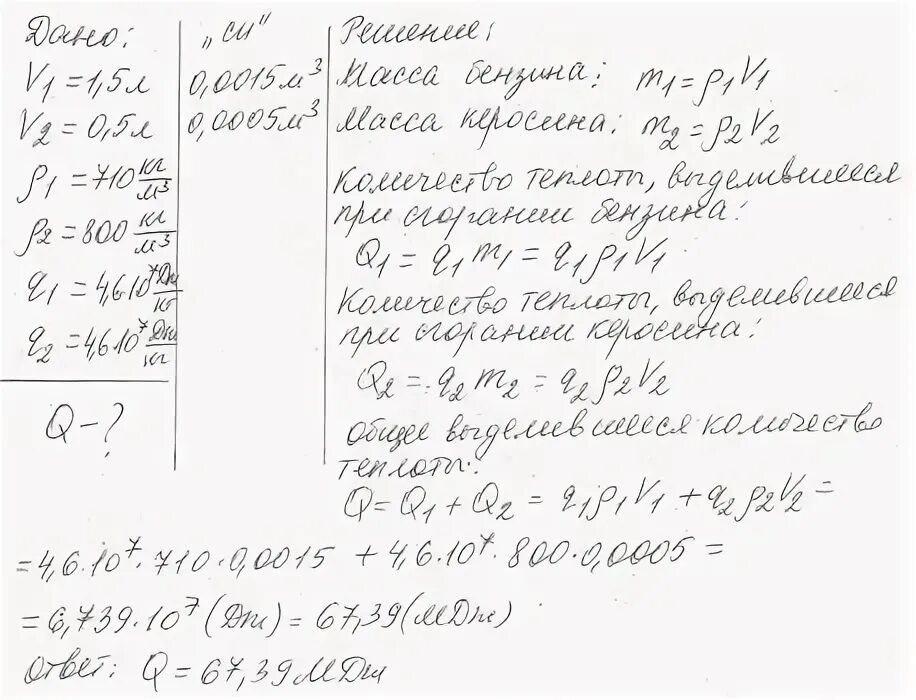 Дано:
V1 = 1,5 л
V2 = 0,5 л
ρ1 = 710 кг/м³
ρ2 = 800 кг/м³
q1 = 4,6·10⁷ Дж/кг
q2 = 4,6·10⁷ Дж/кг
Q - ?
„СИ“
0,0015 м³
0,0005 м³
Решение:
Масса бензина: m1 = ρ1V1
Масса керосина: m2 = ρ2V2
Количество теплоты, выделившееся
при сгорании бензина:
Q1 = q1m1 = q1ρ1V1
Количество теплоты, выделившееся
при сгорании керосина:
Q2 = q2m2 = q2ρ2V2
Общее выделившееся количество
теплоты:
Q = Q1 + Q2 = q1ρ1V1 + q2ρ2V2 =
= 4,6·10⁷·710·0,0015 + 4,6·10⁷·800·0,0005 =
= 6,739·10⁷ (Дж) = 67,39 (МДж)
Ответ: Q = 67,39 МДж